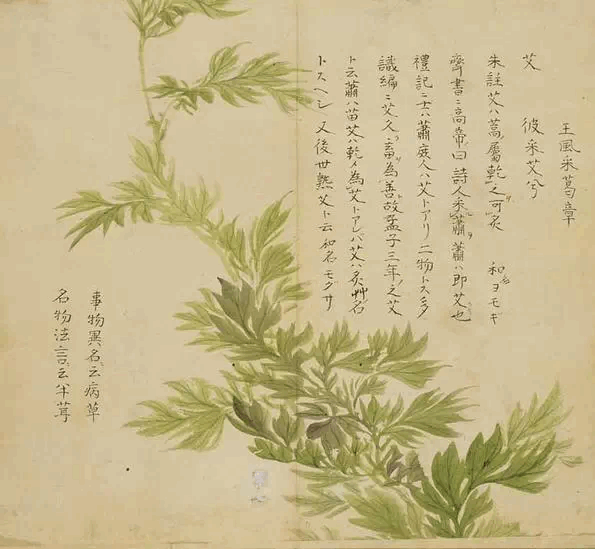 王風采葛章
艾 彼采艾兮
朱註艾ハ蒿屬乾之可灸 和名ヨモギ
齊書ニ高帝曰詩人采蕭蕭ハ即艾也
禮記ニ士ハ蕭庶人ハ艾トアリ二物トス
識編ニ艾久畜為善故孟子三年之艾
ト云蕭ハ苗艾ハ乾〆為艾トアレバ艾ハ灸艸名
トスヘシ 又後世熟艾ト云和名モグサ
事物異名云病草
名物法言云半茸